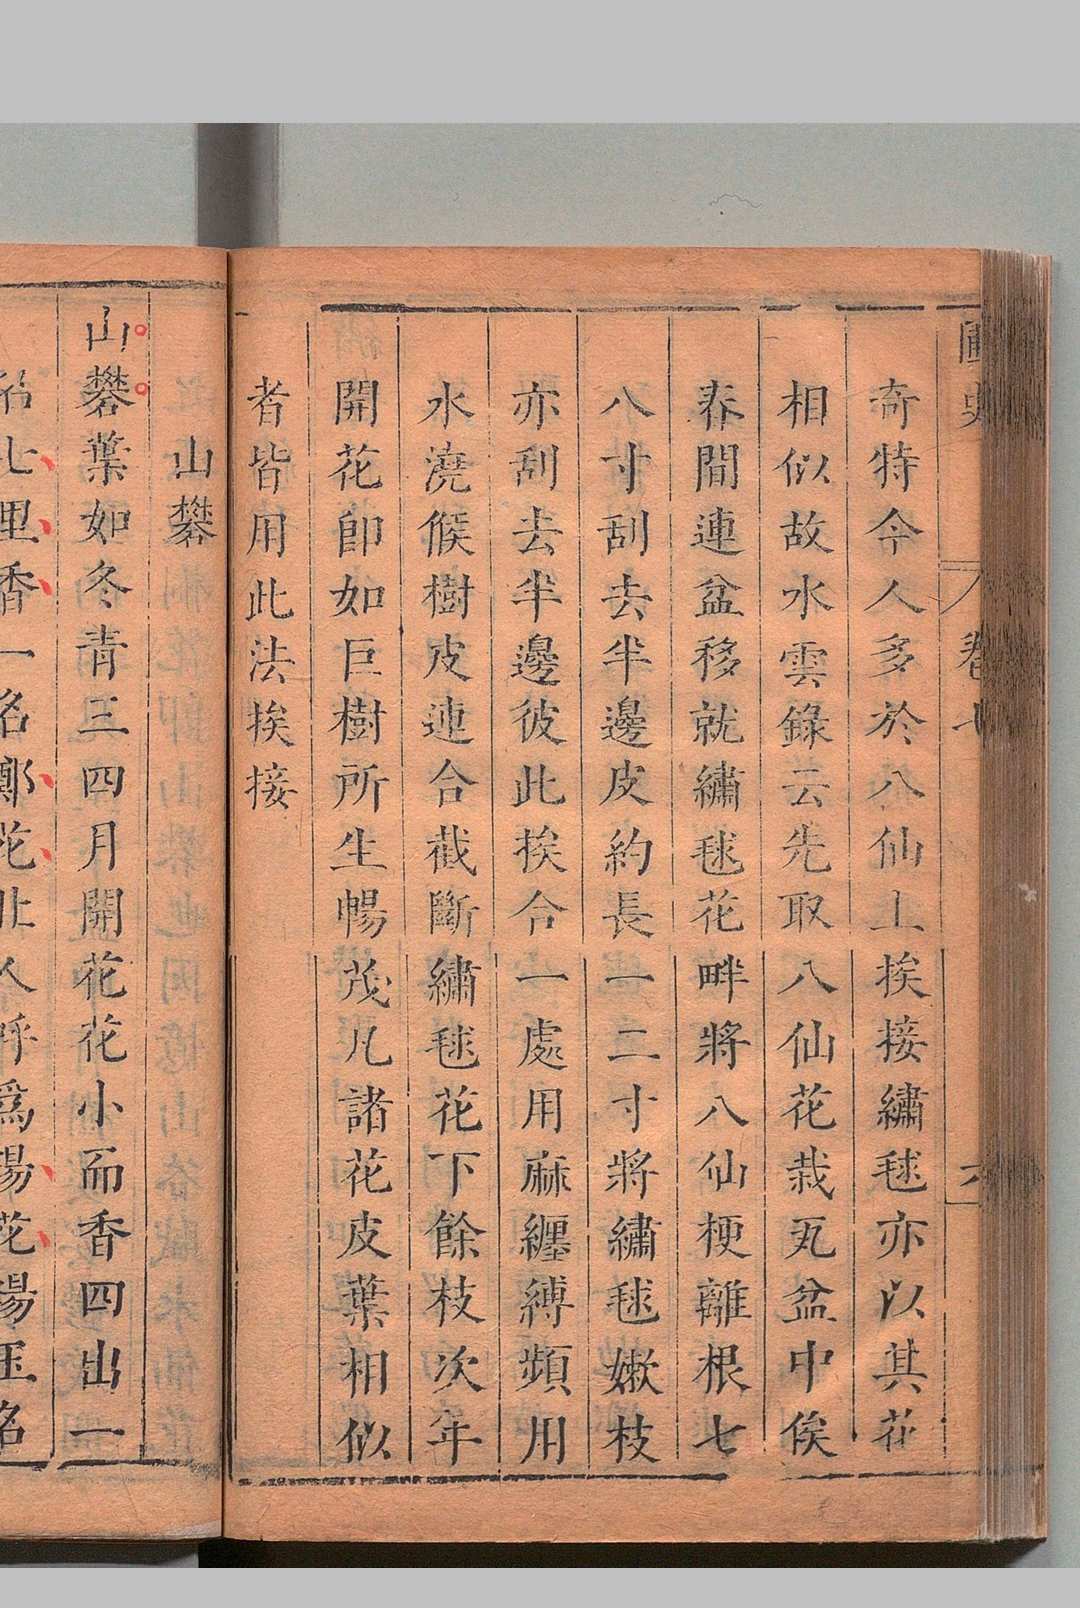 卷七
奇特今人多於八仙上挨接繡毬亦以其花
相似故水雲錄云先取八仙花栽瓦盆中俟
春間連盆移就繡毬花畔將八仙梗離根七
八寸刮去半邊皮約長一二寸將繡毬嫰枝
亦刮去半邊彼此挨合一處用麻纏縛頻用
水澆候樹皮連合截斷繡毬花下餘枝次年
開花卽如巨樹所生暢茂凡諸花皮葉相似
者皆用此法挨接
山礬
山礬葉如冬青三四月開花花小而香四出一
名七里香一名鄭花北人呼爲瑒花瑒玉名